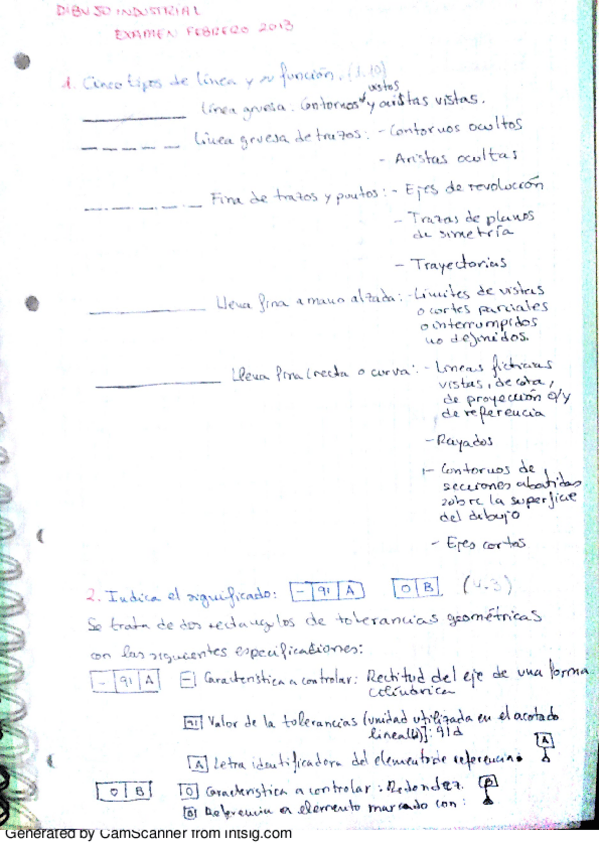 DIBUJO INDUSTRIAL
EXAMEN FEBRERO 2013
1. Cinco tipos de línea y su función. (1.10)
vistos
Línea gruesa. Contornos y aristas vistas.
Línea gruesa de trazos: - Contornos ocultos
- Aristas ocultas
Fina de trazos y puntos: - Ejes de revolución
- Trazas de planos
de simetría
- Trayectorias
Llena fina a mano alzada: - Límites de vistas
o cortes parciales
o interrumpidos
no definidos.
Llena fina (recta o curva: - Líneas ficticias
vistas, de cota,
de proyección o/y
de referencia
- Rayados
- Contornos de
secciones abatidas
sobre la superficie
del dibujo
- Ejes cortos
2. Indica el significado: - 91 A O B. (4.3)
Se trata de dos rectángulos de tolerancias geométricas
con las siguientes especificaciones:
- 91 A - Característica a controlar: Rectitud del eje de una forma
cilíndrica
91 Valor de la tolerancias (unidad utilizada en el acotado
lineal)]: 91d
A Letra identificadora del elemento de referencia: A
O B O Característica a controlar: Redondez. B
B Referencia a elemento marcado con:
Generated by CamScanner from intsig.com